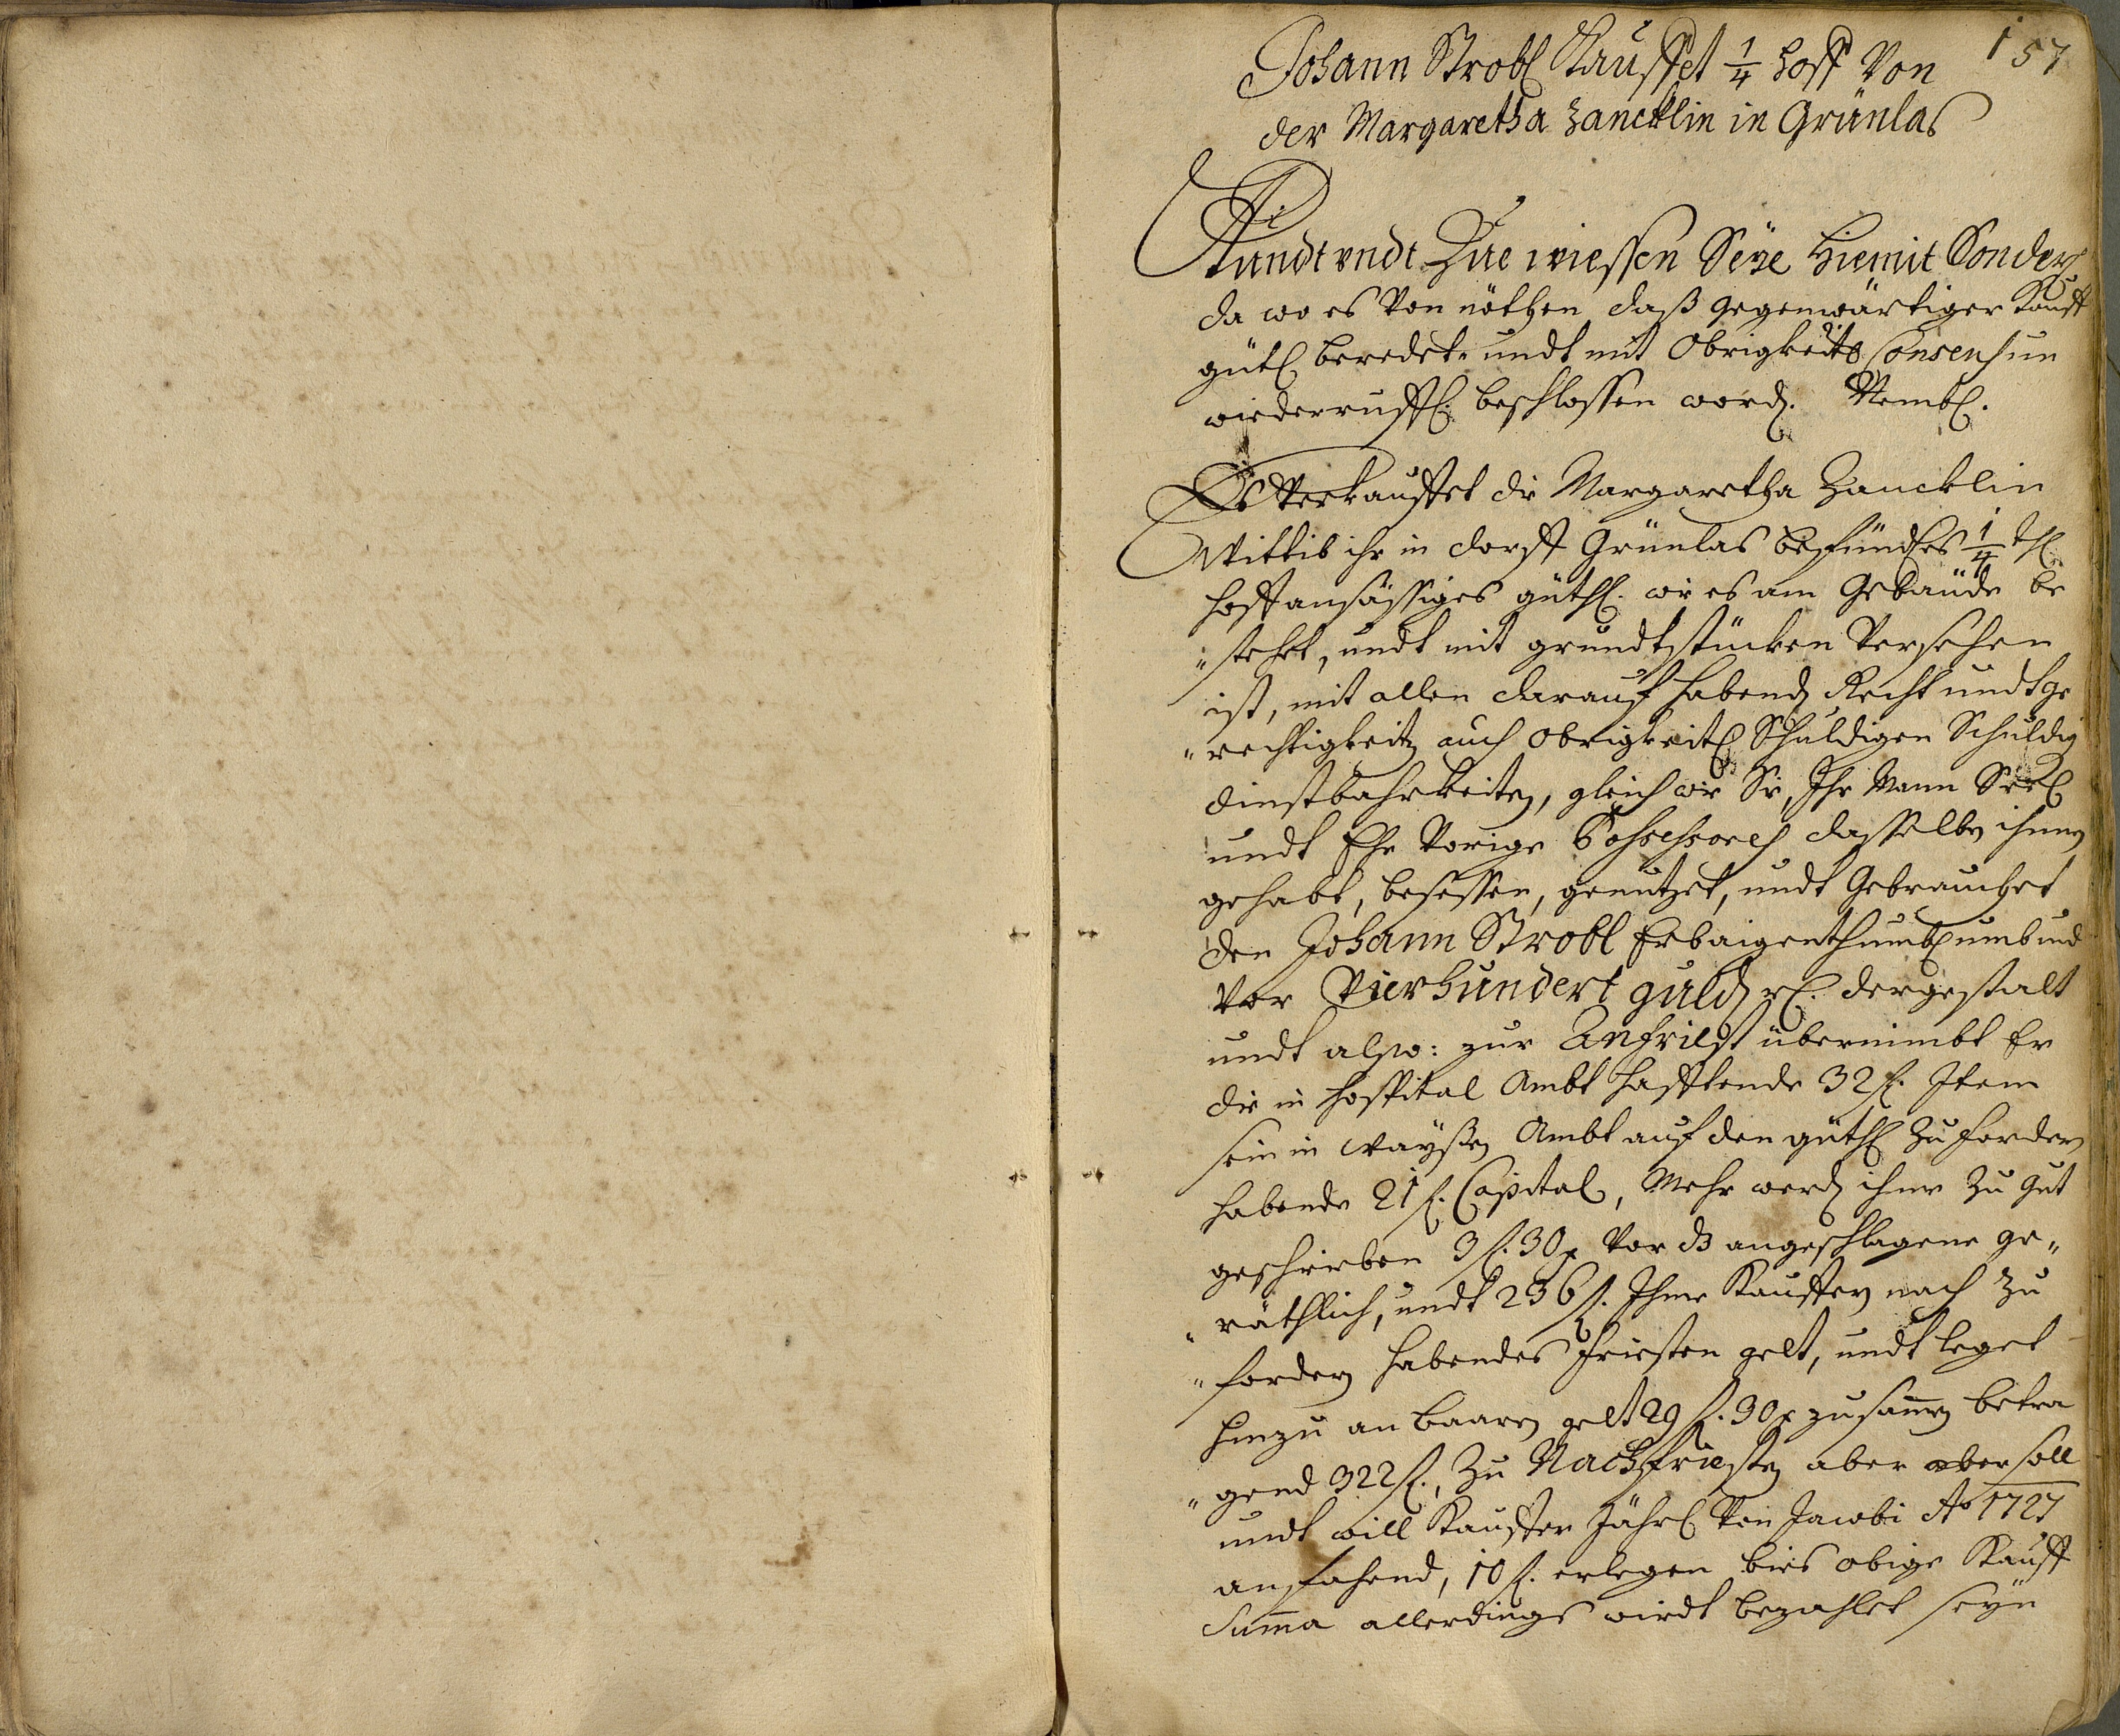 157
Johann Strobl Kauffet 1/4 hoff Von
der Margaretha Zancklin in Grünlas
Kundt undt Zue wiessen Seÿe Hiemit Sonder
da wo es Von nöthen daß gegenwärtiger Kauff
gütl beredet undt mit Obrigkeits Consens un
wiederruffl. beschlossen word. Nembl.
Es Verkauffet die Margaretha Zancklin
Wittib ihr in dorff Grünlas befindtes 1/4 thl
hoff ansässiges güthl. wie es am Gebäude be
" stehet, undt mit grundtstücken Versehen
ist, mit allen darauf habend Recht undt ge
" rechtigkeit auch obrigkeitl Schuldigen Schuldig
dienstbahrkeiten, gleich wie Sie, Ihr Mann Seel
undt Ehe Vorige Possessores dasselbe ihnen
gehabt, besessen, genützet, undt Gebrauchet
den Johann Strobl Erbaigenthumbl umb und
Vor Vierhundert guld rl. dergestalt
undt also: zur Anfriest übernimbt Er
die in hospital Ambt hafftende 32 fl. Item
sein in waÿsen Ambt auf den güthl zu fordern
habende 21 fl. Capital, Mehr werd ihme zu gut
geschrieben 3 fl. 30 x Vor ds angeschlagene ge„
" räthlich, undt 236 fl. Ihme Kauffern nach zu
" fordern habendes Friesten gelt, undt leget
hinzu an baaren gelt 29 fl. 30 x zusamen betra
" gend 322 fl., Zu Nachfriesten aber aber soll
undt will Kauffer Jährl Von Jacobi Ao 1727
anfahend, 10 fl. erlegen bies obige Kauff
Suma allerdings wirdt bezahlet seÿn